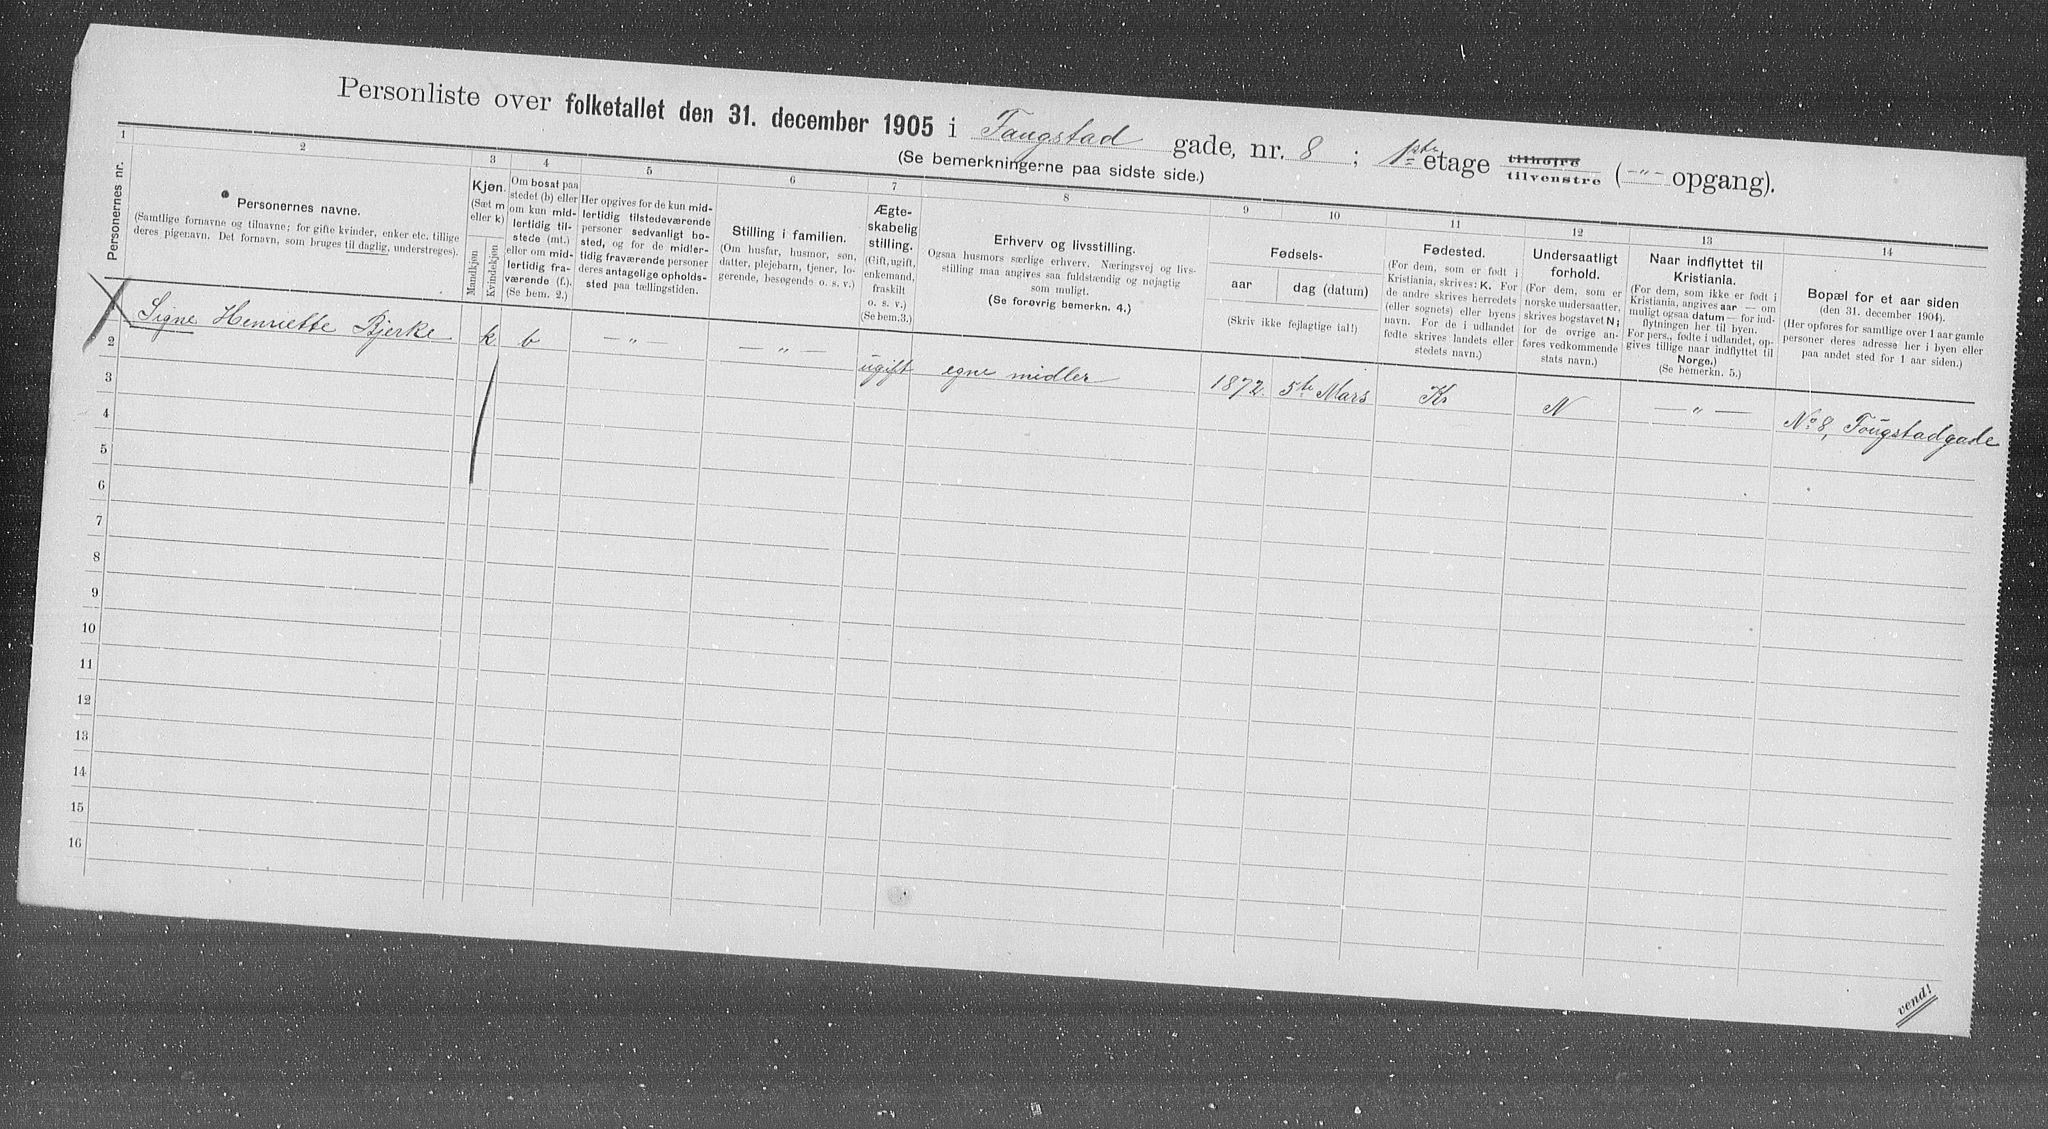 Personliste over folketallet den 31. december 1905 i Faugstad gade, nr. 8 ; 1ste etage tilhøjre tilvenstre (-"- opgang).
(Se bemerkningerne paa sidste side.)
1 2 3 4 5 6 7 8 9 10 11 12 13 14
Personernes nr.
Personernes navne.
(Samtlige fornavne og tilnavne; for gifte kvinder, enker etc. tillige
deres pigenavn. Det fornavn, som bruges til daglig, understreges).
Kjøn.
(Sæt m
eller k)
Mandkjøn
Kvindekjøn
Om bosat paa
stedet (b) eller
om kun mid-
lertidig til-
stede (mt.)
eller om mid-
lertidig fra-
værende (f.).
(Se bem. 2.)
Her opgives for de kun mid-
lertidig tilstedeværende
personer sedvanligt bo-
sted, og for de midler-
tidig fraværende personer
deres antagelige opholds-
sted paa tællingstiden.
Stilling i familien.
(Om husfar, husmor, søn,
datter, plejebarn, tjener, lo-
gerende, besøgende o. s. v.)
Ægte-
skabelig
stilling.
(Gift, ugift,
enkemand,
fraskilt
o. s. v.)
(Se bem.3.)
Erhverv og livsstilling.
Ogsaa husmors særlige erhverv. Næringsvej og livs-
stilling maa angives saa fuldstændig og nøjagtig
som muligt.
(Se forøvrig bemerkn. 4.)
Fødsels-
aar
dag (datum)
(Skriv ikke fejlagtige tal!)
Fødested.
(For dem, som er født i
Kristiania, skrives: K. For
de andre skrives herredets
(eller sognets) eller byens
navn. For de i udlandet
fødte skrives landets eller
stedets navn.)
Undersaatligt
forhold.
(For dem, som er
norske undersaatter,
skrives bogstavet N;
for de øvrige an-
føres vedkommende
stats navn.)
Naar indflyttet til
Kristiania.
(For dem, som ikke er født i
Kristiania, angives aar — om
muligt ogsaa datum — for ind-
flytningen her til byen.
For pers., fødte i udlandet, op-
gives tillige naar indflyttet til
Norge.)
(Se bemerkn. 5.)
Bopæl for et aar siden
(den 31. december 1904).
(Her opføres for samtlige over 1 aar gamle
personer deres adresse her i byen eller
paa andet sted for 1 aar siden.)
Signe Henriette Bjerke k b -"- -"- ugift egne midler 1872. 5te Mars K. N -"- No 8, Fougstadgade
2
3
4
5
6
7
8
9
10
11
12
13
14
15
16
vend!